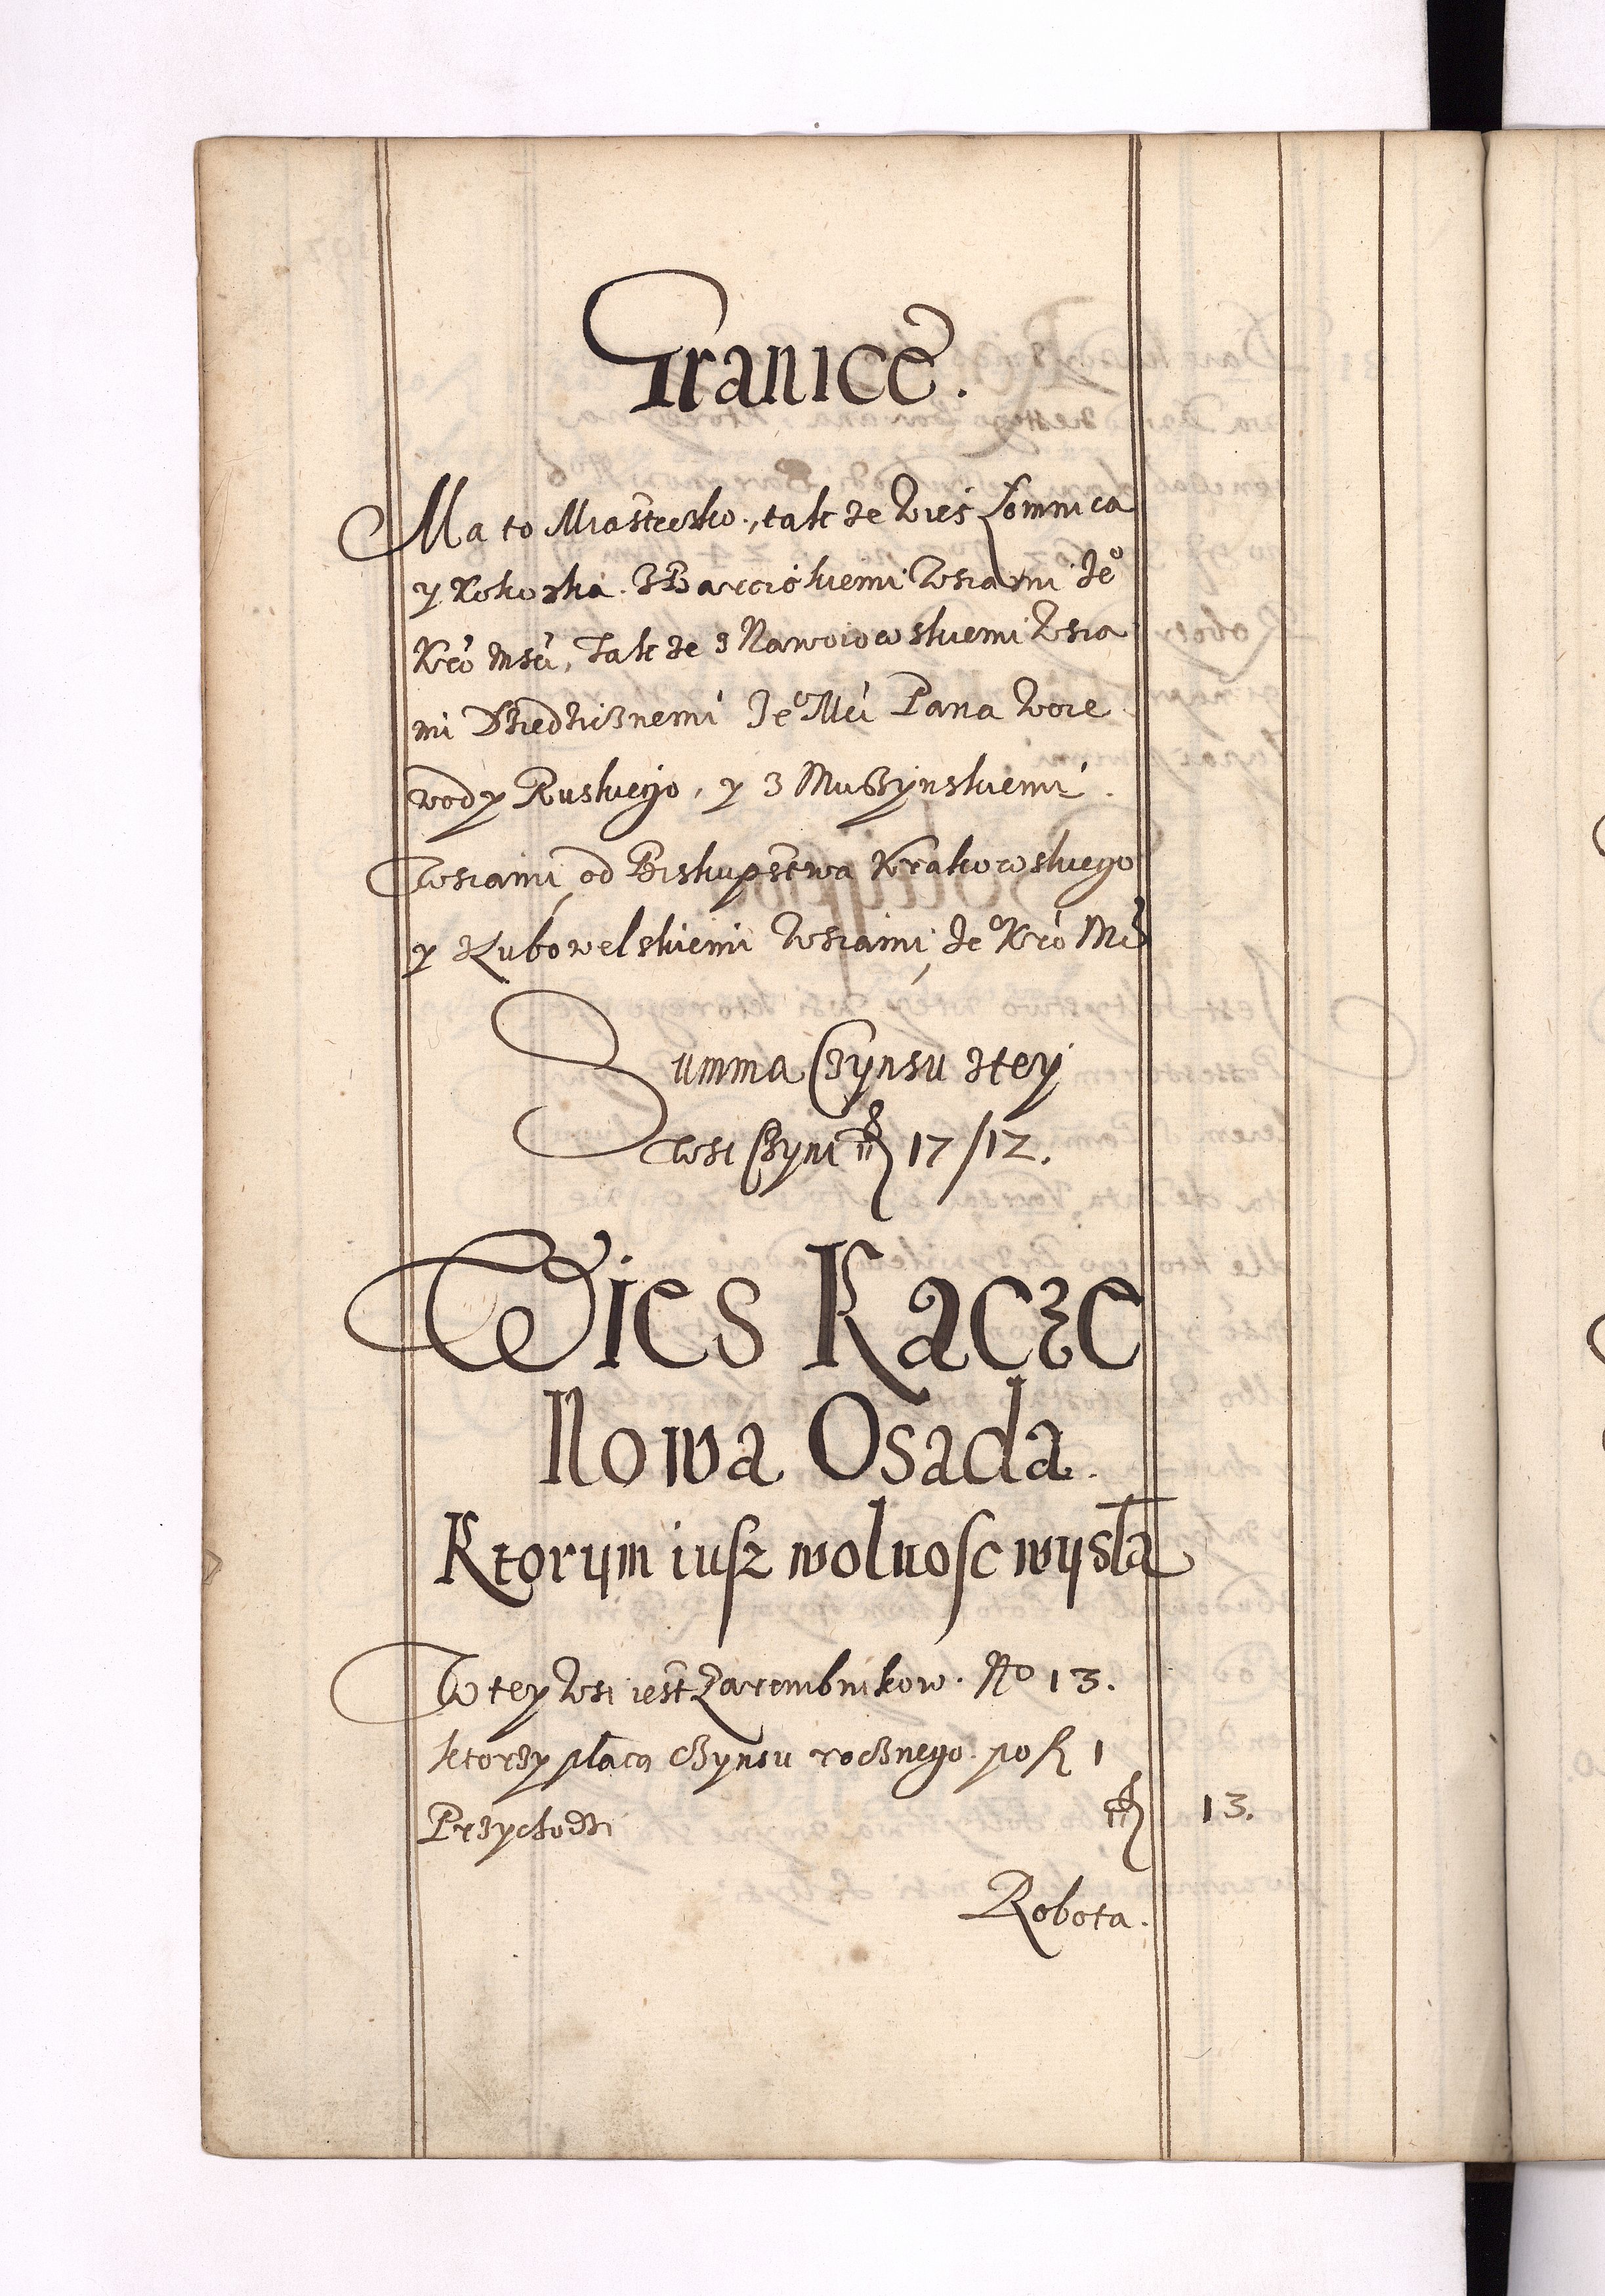 Granice.
Ma to Miasteczko, takze Wies Łomnica
y Kokoszka. Z Barcickiemi Wsiami Je⁰
Kro Msci, Takze z Nawoiowskiemi Wsia
mi Dziedzicznemi Je⁰ Mci Pana Woie
wody Ruskiego, y z Muszynskiemi
Wsiami od Biskupstwa Krakowskiego
y Lubowelskiemi Wsiami Je⁰ Kro Mci
Summa Czynsu ztey
Wsi Czyni 17/12.
Wies Kacze
Nowa Osada.
Ktorym iusz wolnosc wysła
W tey Wsi iest Zarembnikow. No 13.
ktorzy płacą Czynsu rocznego po fl 1
Przychodzi fl 13.
Robota.